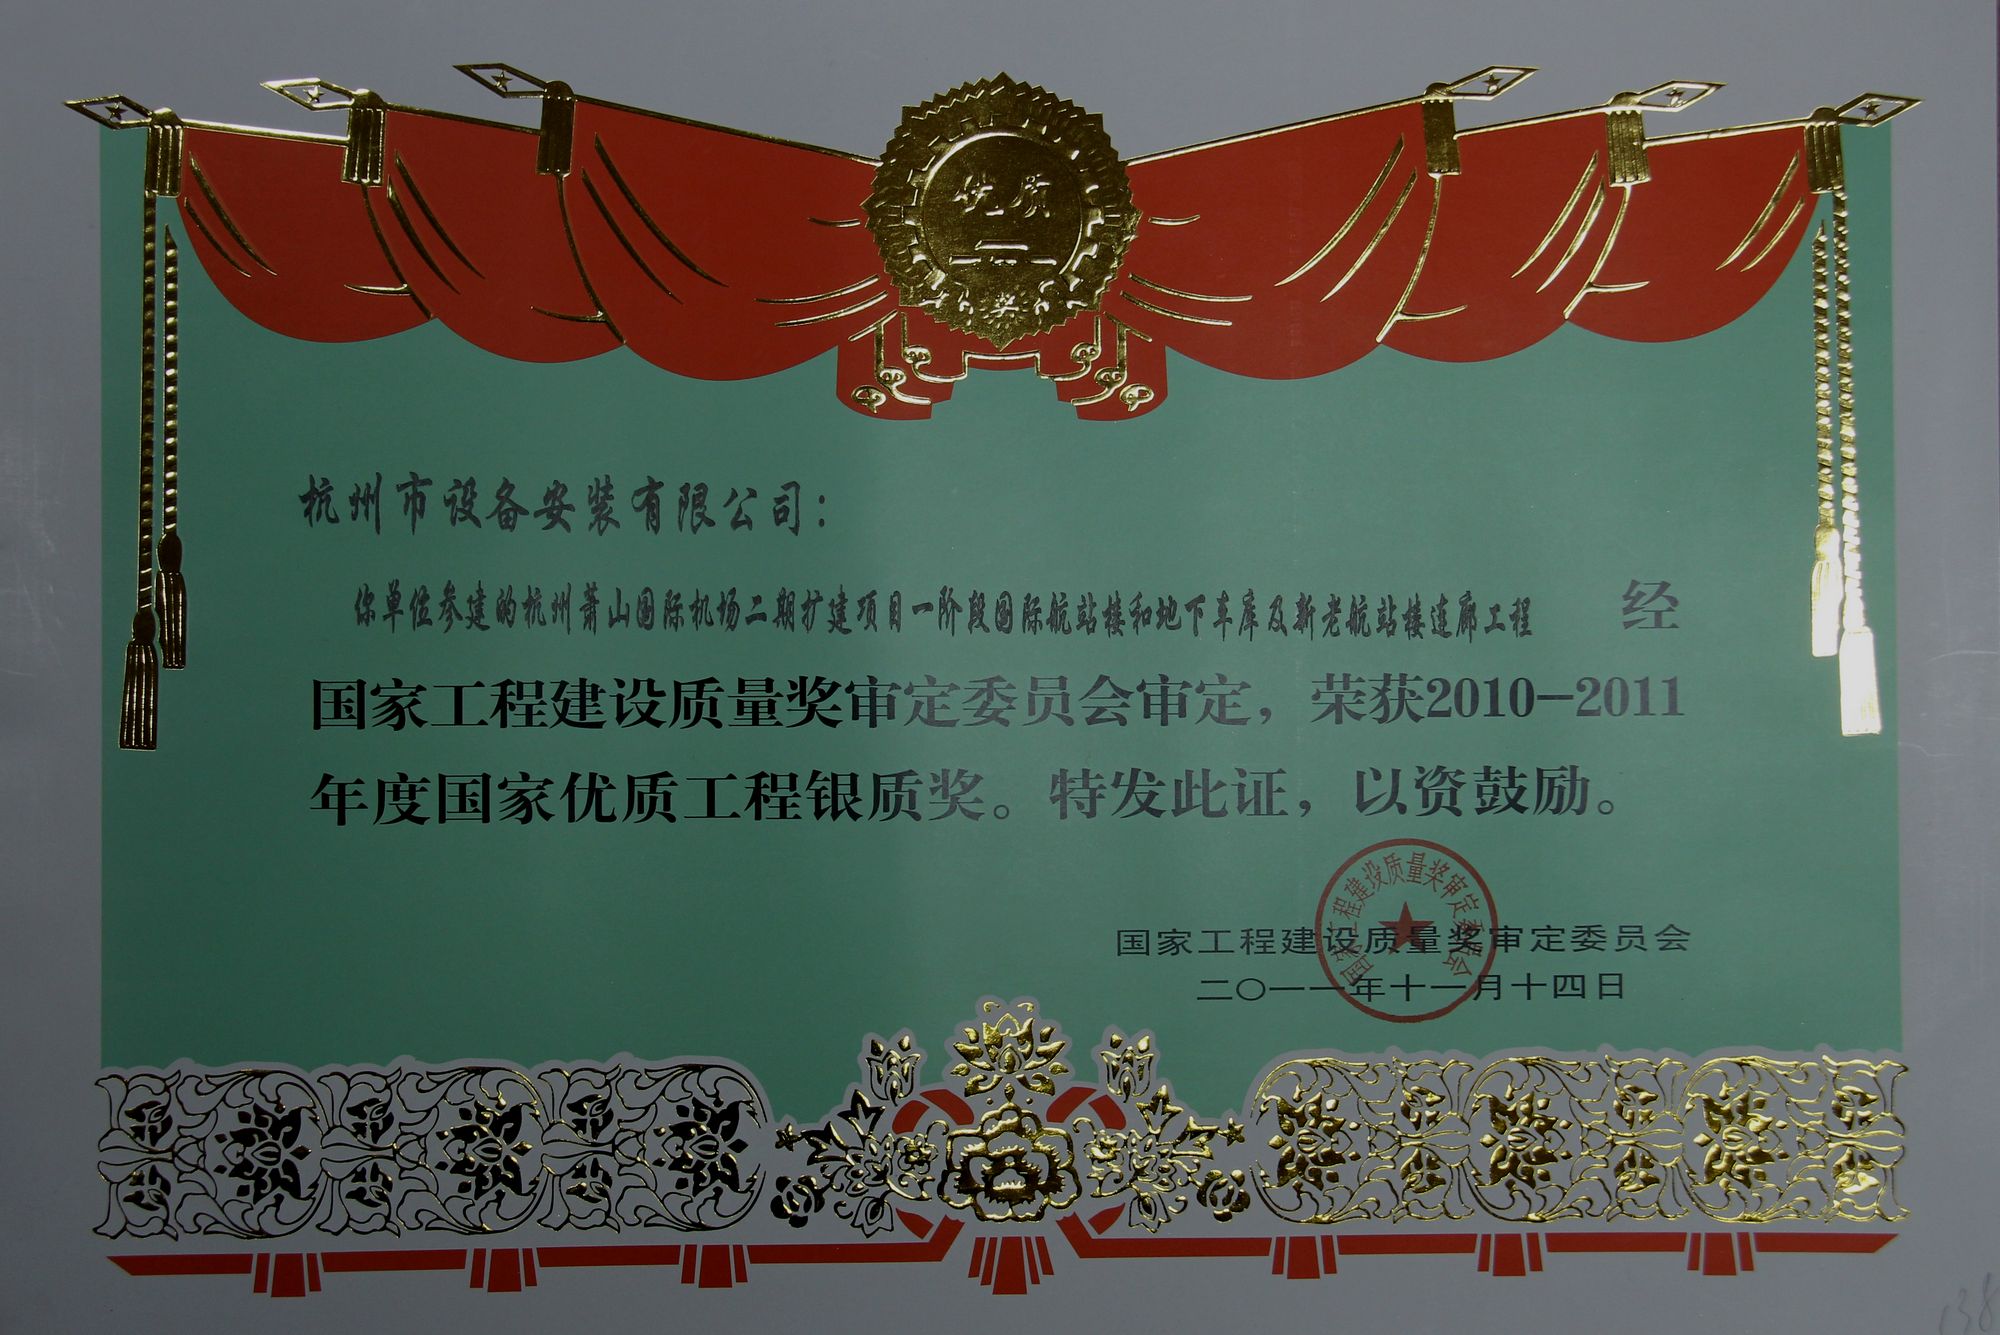 优质
奖
杭州市设备安装有限公司：
你单位参建的杭州萧山国际机场二期扩建项目一阶段国际航站楼和地下车库及新老航站楼连廊工程 经
国家工程建设质量奖审定委员会审定，荣获2010-2011
年度国家优质工程银质奖。特发此证，以资鼓励。
国家工程建设质量奖审定委员会
国家工程建设质量奖审定委员会
二〇一一年十一月十四日
138